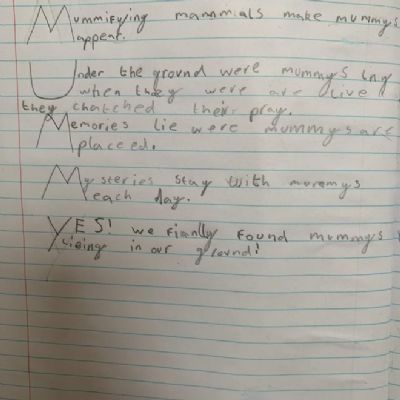 Mummifying mammials make mummys
appear.
Under the ground were mummys lay
when they were are live
they chatched their pray.
Memories lie were mummys are
placeed.
Mysteries stay with mummys
each day.
YES! we fianlly found mummys
lieing in our ground!